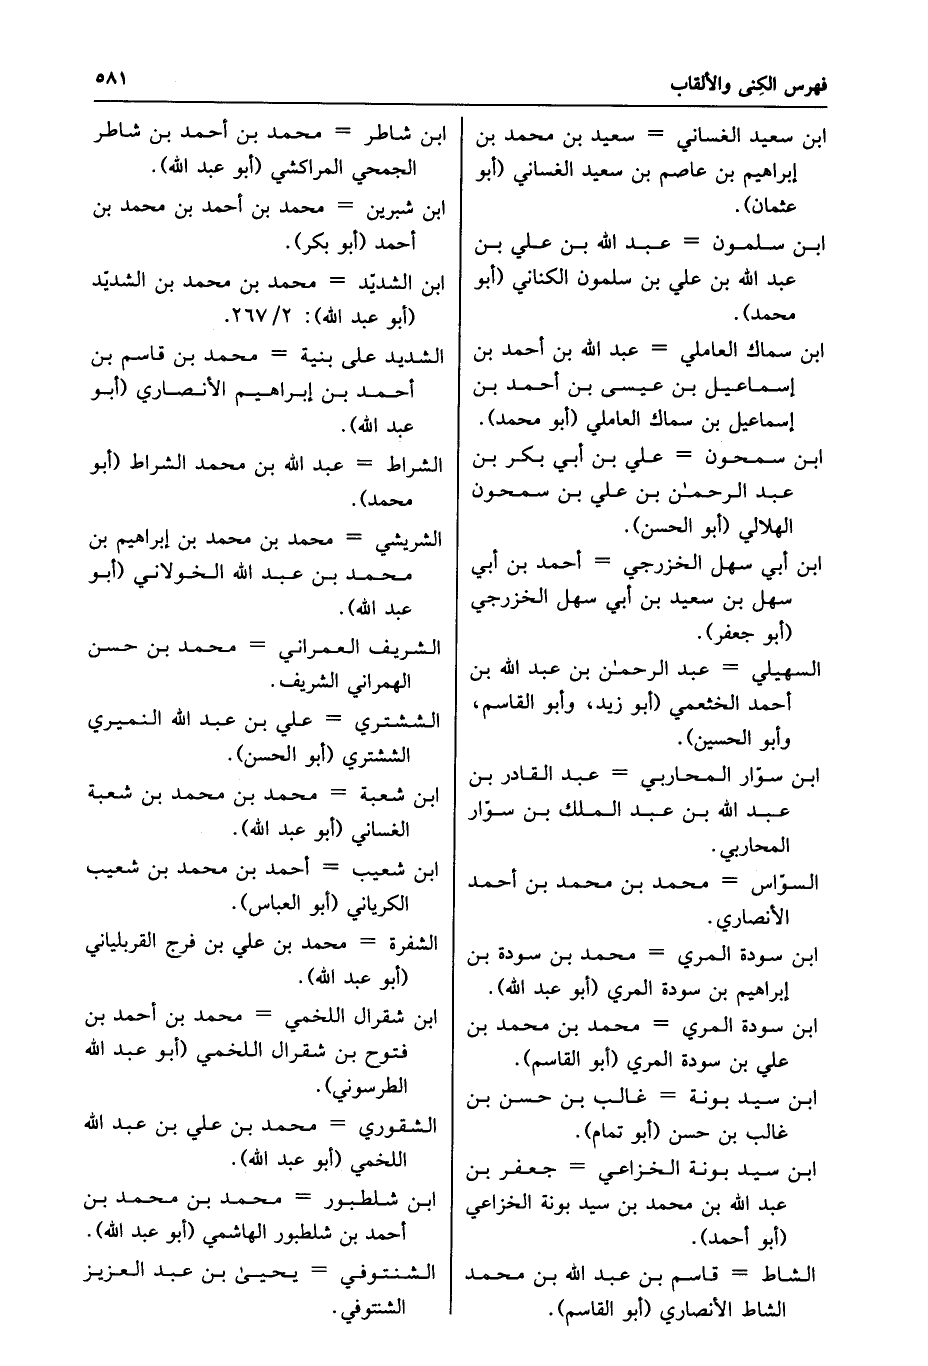 فهرس الكِنى والألقاب
٥٨١
ابن سعيد الغساني = سعيد بن محمد بن
إبراهيم بن عاصم بن سعيد الغساني (أبو
عثمان).
ابن سلمون = عبد الله بن علي بن
عبد الله بن علي بن سلمون الكناني (أبو
محمد).
ابن سماك العاملي = عبد الله بن أحمد بن
إسماعيل بن عيسى بن أحمد بن
إسماعيل بن سماك العاملي (أبو محمد).
ابن سمحون = علي بن أبي بكر بن
عبد الرحمـٰن بن علي بن سمحون
الهلالي (أبو الحسن).
ابن أبي سهل الخزرجي = أحمد بن أبي
سهل بن سعيد بن أبي سهل الخزرجي
(أبو جعفر).
السهيلي = عبد الرحمـٰن بن عبد الله بن
أحمد الخثعمي (أبو زيد، وأبو القاسم،
وأبو الحسين).
ابن سوّار المحاربي = عبد القادر بن
عبد الله بن عبد الملك بن سوّار
المحاربي.
السوّاس = محمد بن محمد بن أحمد
الأنصاري.
ابن سودة المري = محمد بن سودة بن
إبراهيم بن سودة المري (أبو عبد الله).
ابن سودة المري = محمد بن محمد بن
علي بن سودة المري (أبو القاسم).
ابن سيد بونة = غالب بن حسن بن
غالب بن حسن (أبو تمام).
ابن سيد بونة الخزاعي = جعفر بن
عبد الله بن محمد بن سيد بونة الخزاعي
(أبو أحمد).
الشاط = قاسم بن عبد الله بن محمد
الشاط الأنصاري (أبو القاسم).
ابن شاطر = محمد بن أحمد بن شاطر
الجمحي المراكشي (أبو عبد الله).
ابن شبرين = محمد بن أحمد بن محمد بن
أحمد (أبو بكر).
ابن الشديّد = محمد بن محمد بن الشديّد
(أبو عبد الله): ٢/ ٢٦٧.
الشديد على بنية = محمد بن قاسم بن
أحمد بن إبراهيم الأنصاري (أبو
عبد الله).
الشراط = عبد الله بن محمد الشراط (أبو
محمد).
الشريشي = محمد بن محمد بن إبراهيم بن
محمد بن عبد الله الخولاني (أبو
عبد الله).
الشريف العمراني = محمد بن حسن
الهمراني الشريف.
الششتري = علي بن عبد الله النميري
الششتري (أبو الحسن).
ابن شعبة = محمد بن محمد بن شعبة
الغساني (أبو عبد الله).
ابن شعيب = أحمد بن محمد بن شعيب
الكرياني (أبو العباس).
الشفرة = محمد بن علي بن فرج القربلياني
(أبو عبد الله).
ابن شقرال اللخمي = محمد بن أحمد بن
فتوح بن شقرال اللخمي (أبو عبد الله
الطرسوني).
الشقوري = محمد بن علي بن عبد الله
اللخمي (أبو عبد الله).
ابن شلطبور = محمد بن محمد بن
أحمد بن شلطبور الهاشمي (أبو عبد الله).
الشنتوفي = يحيىٰ بن عبد العزيز
الشنتوفي.